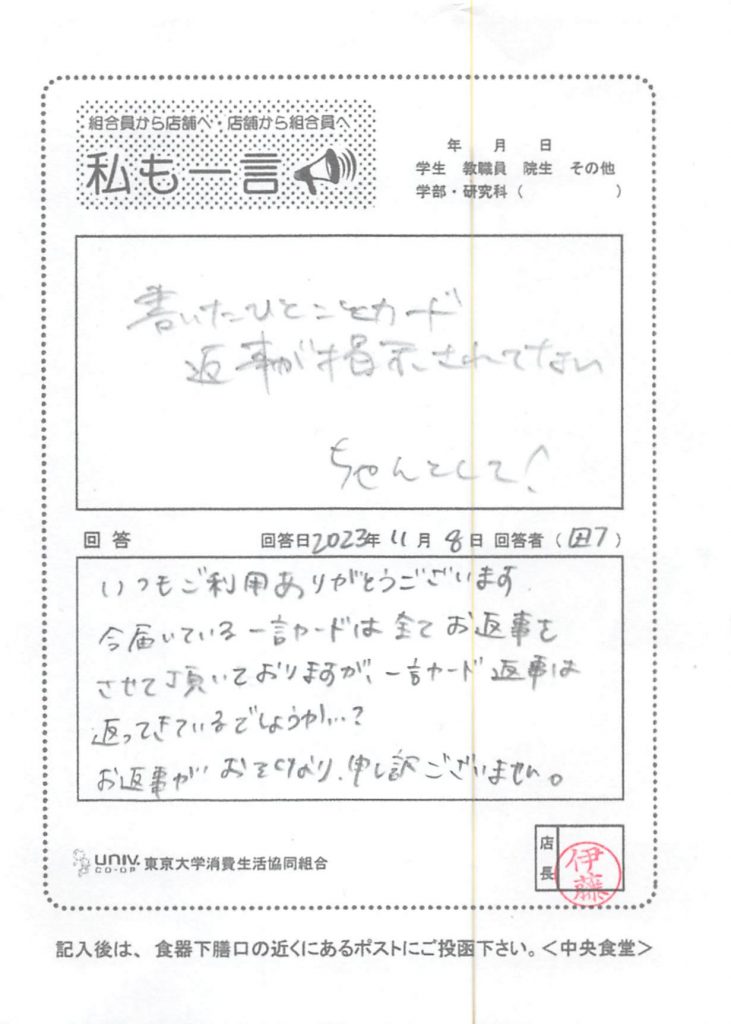 組合員から店舗へ・店舗から組合員へ
私も一言
年 月 日
学生 教職員 院生 その他
学部・研究科( )
書いたひとことカード
返事が掲示されてない
ちゃんとして!
回答 回答日2023年11月8日 回答者( )
いつもご利用ありがとうございます
今届いている一言カードは全てお返事を
させて頂いておりますが、一言カード返事は
返ってきているでしょうか…?
お返事がおそくなり、申し訳ございません。
UNIV. CO-OP 東京大学消費生活協同組合
店長 伊藤
記入後は、食器下膳口の近くにあるポストにご投函下さい。<中央食堂>